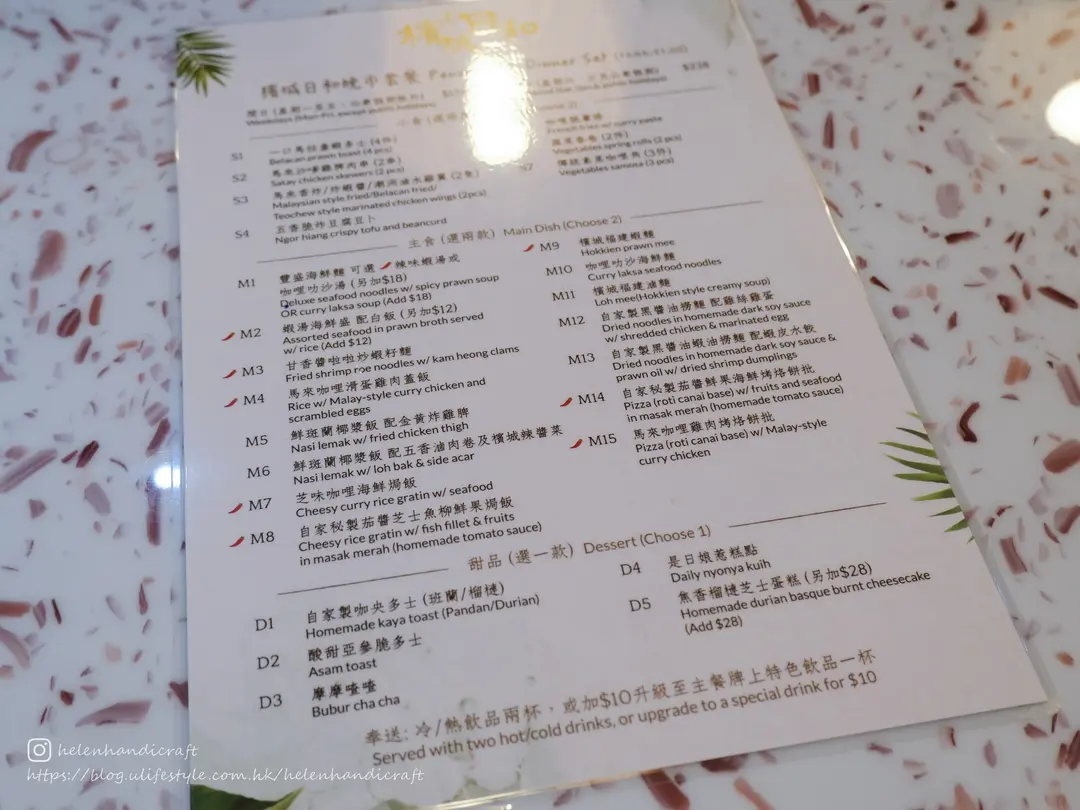 檳城日和晚市套裝 Dinner Set
Weekdays (Mon-Fri, except public holidays)
$238
小食
S1 一口馬拉盞蝦多士 (4件)
Belacan prawn toast (4 pcs)
S2 馬來沙嗲雞脾肉串 (2串)
Satay chicken skewers (2 pcs)
S3 馬來香炸/炸蝦醬/潮州滷水雞翼 (2隻)
Malaysian style fried/Belacan fried/
Teochew style marinated chicken wings (2pcs)
S4 五香脆炸豆腐豆卜
Ngor hiang crispy tofu and beancurd
French fries w/ curry paste
蔬菜春卷 (2件)
Vegetables spring rolls (2 pcs)
S7
Vegetables samosa (3 pcs)
主食 (選兩款) Main Dish (Choose 2)
M1 豐盛海鮮麵 可選 辣味蝦湯或
咖哩叻沙湯 (另加$18)
Deluxe seafood noodles w/ spicy prawn soup
OR curry laksa soup (Add $18)
M2 蝦湯海鮮盛 配白飯 (另加$12)
Assorted seafood in prawn broth served
w/ rice (Add $12)
M3 甘香醬啦啦炒蝦籽麵
Fried shrimp roe noodles w/ kam heong clams
M4 馬來咖哩滑蛋雞肉蓋飯
Rice w/ Malay-style curry chicken and
scrambled eggs
M5 鮮斑蘭椰漿飯 配金黃炸雞脾
Nasi lemak w/ fried chicken thigh
M6 鮮斑蘭椰漿飯 配五香滷肉卷及檳城辣醬菜
Nasi lemak w/ loh bak & side acar
M7 芝味咖哩海鮮焗飯
Cheesy curry rice gratin w/ seafood
M8 自家秘製茄醬芝士魚柳鮮果焗飯
Cheesy rice gratin w/ fish fillet & fruits
in masak merah (homemade tomato sauce)
M9 檳城福建蝦麵
Hokkien prawn mee
M10 咖哩叻沙海鮮麵
Curry laksa seafood noodles
M11 檳城福建滷麵
Loh mee(Hokkien style creamy soup)
M12 自家製黑醬油撈麵 配雞絲雞蛋
Dried noodles in homemade dark soy sauce
w/ shredded chicken & marinated egg
M13 自家製黑醬油蝦油撈麵 配蝦皮水餃
Dried noodles in homemade dark soy sauce &
prawn oil w/ dried shrimp dumplings
M14 自家秘製茄醬鮮果海鮮烤烙餅批
Pizza (roti canai base) w/ fruits and seafood
in masak merah (homemade tomato sauce)
M15 馬來咖哩雞肉烤烙餅批
Pizza (roti canai base) w/ Malay-style
curry chicken
甜品 (選一款) Dessert (Choose 1)
D1 自家製咖央多士 (班蘭/榴槤)
Homemade kaya toast (Pandan/Durian)
D2 酸甜亞參脆多士
Asam toast
D3 摩摩喳喳
Bubur cha cha
D4 是日娘惹糕點
Daily nyonya kuih
D5 焦香榴槤芝士蛋糕 (另加$28)
Homemade durian basque burnt cheesecake
(Add $28)
奉送: 冷/熱飲品兩杯, 或加$10升級至主餐牌上特色飲品一杯
Served with two hot/cold drinks, or upgrade to a special drink for $10
helenhandicraft
https://blog.ulifestyle.com.hk/helenhandicraft